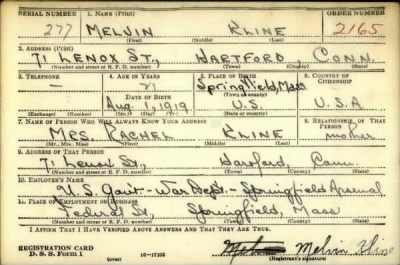 SERIAL NUMBER 1. NAME (Print) ORDER NUMBER
277 MELVIN KLINE 2165
(First) (Middle) (Last)
2. ADDRESS (Print)
71 LENOX ST., HARTFORD CONN.
(Number and street or R. F. D. number) (Town) (County) (State)
3. TELEPHONE 4. AGE IN YEARS 5. PLACE OF BIRTH 6. COUNTRY OF CITIZENSHIP
— 21 Springfield, Mass
DATE OF BIRTH (Town or county)
Aug. 1, 1919 U.S. U.S.A
(Exchange) (Number) (Mo.) (Day) (Yr.) (State or country)
7. NAME OF PERSON WHO WILL ALWAYS KNOW YOUR ADDRESS 8. RELATIONSHIP OF THAT PERSON
MRS. RACHEL KLINE mother
(Mr., Mrs., Miss) (First) (Middle) (Last)
9. ADDRESS OF THAT PERSON
71 Lenox St., Hartford, Conn.
(Number and street or R. F. D. number) (Town) (County) (State)
10. EMPLOYER'S NAME
U.S. Gov't - War Dept. - Springfield Arsenal
11. PLACE OF EMPLOYMENT OR BUSINESS
Federal St., Springfield, Mass
(Number and street or R. F. D. number) (Town) (County) (State)
I AFFIRM THAT I HAVE VERIFIED ABOVE ANSWERS AND THAT THEY ARE TRUE.
REGISTRATION CARD
D. S. S. Form 1 (over) 16-17105 Melvin Kline
(Registrant's signature)